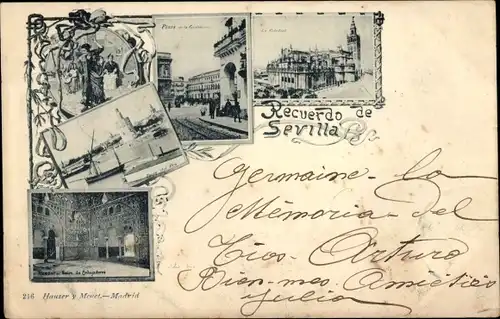 Plaza de la Constitución
La Catedral
Recuerdo de
Sevilla
Germaine - la
Mémoria - del
Tios - Arturo
Bien-mes Amcitiés
Julia
Alcázar - Salón de Embajadores
216 Hauser y Menet.—Madrid